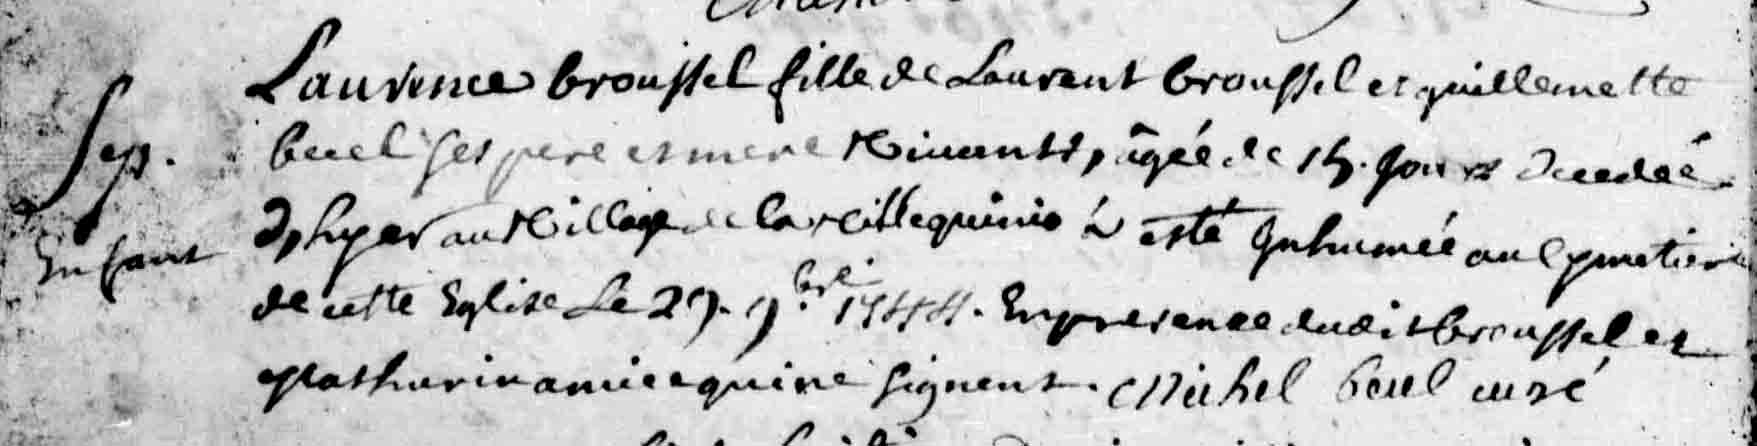 Laurence broussel fille de Laurent broussel et guillemette
Sep. becel ses pere et mere vivants, âgée de 15. jours decedée
Enfant d'hyer au village de la villequinio a esté Inhumée au cymetiere
de cette Eglise Le 27. 9.bre 1744. En presence dudit broussel et
Mathurin amice qui ne signent. Michel becel curé